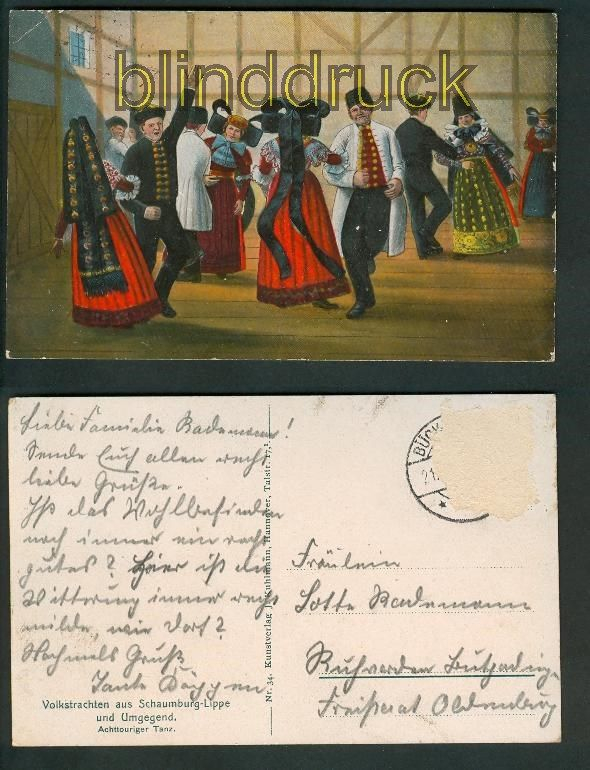 blinddruck
Liebe Familie Rademann!
Sende Euch allen recht
liebe Grüße.
Ist das Wohlbefinden
noch immer ein recht
gutes? Hier ist die
Witterung immer recht
milde, wie dort?
Nochmals Gruß
Tante Döppen
Volkstrachten aus Schaumburg-Lippe
und Umgegend.
Achttouriger Tanz.
Nr. 34. Kunstverlag Hannover, Talstr. 17,1.
BÜCK
21.
Fräulein
Lotte Rademann
Ruhwarden Butjadingen
Freistaat Oldenburg